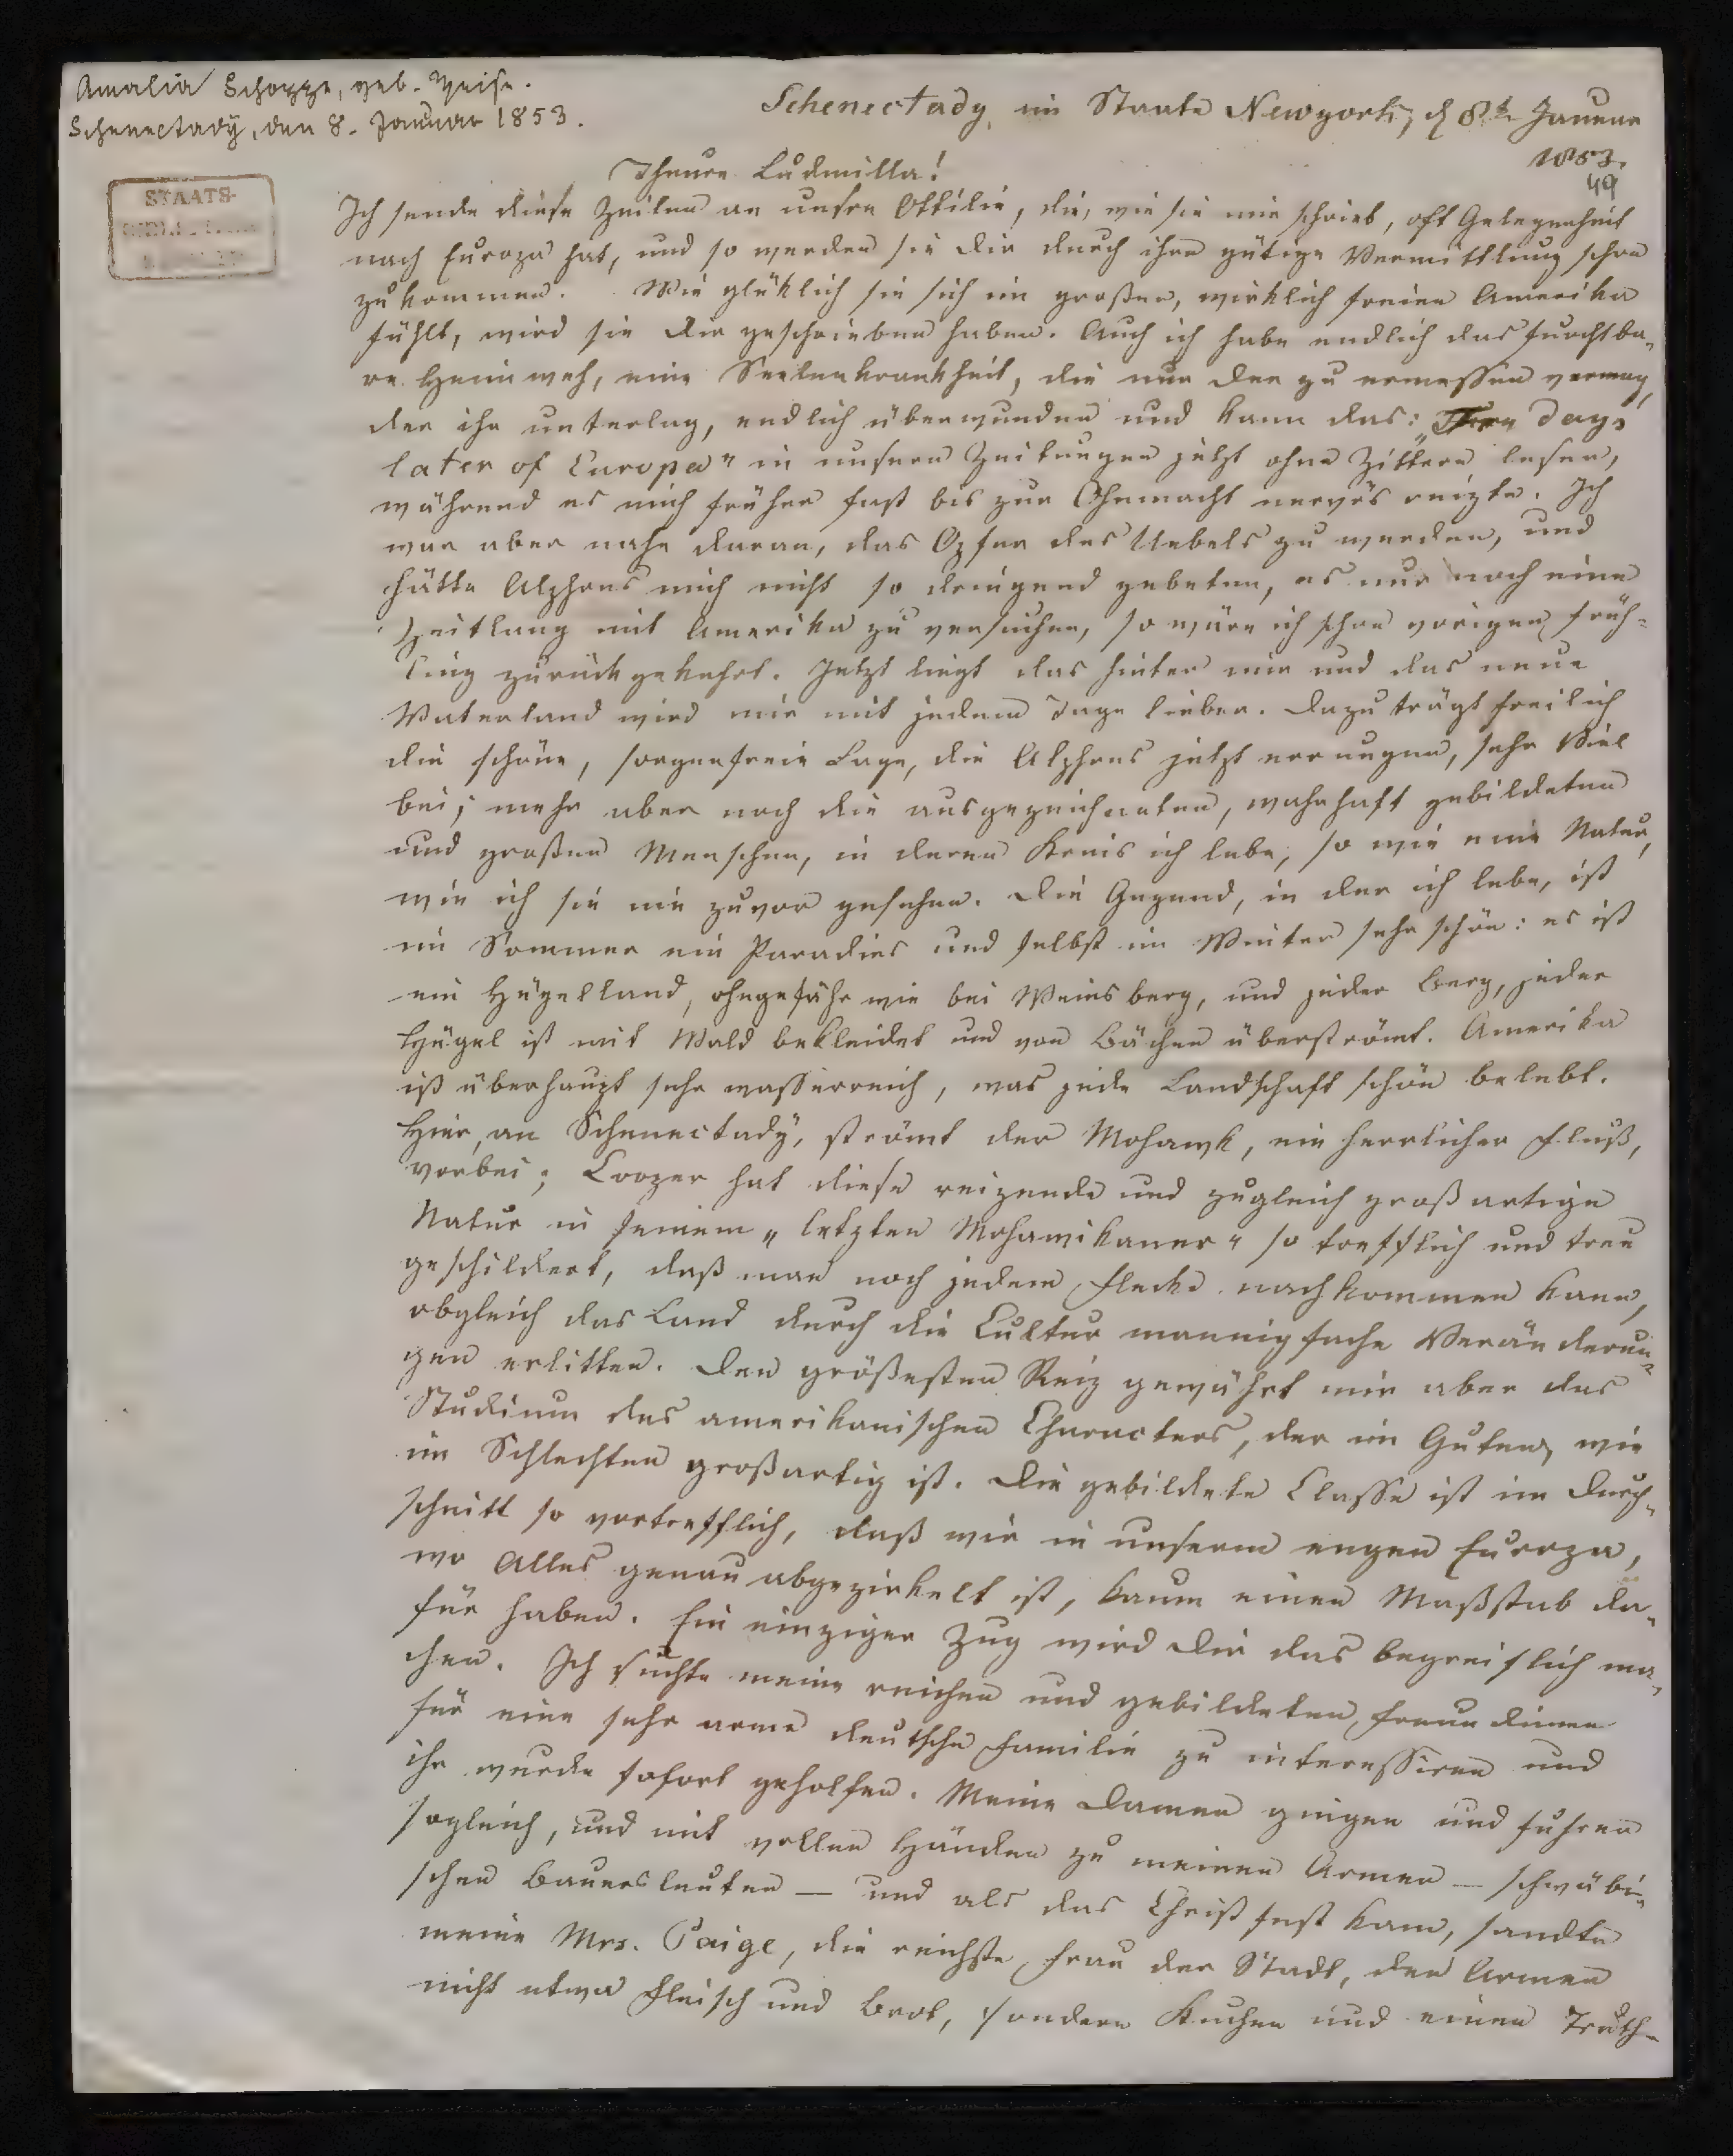 Amalia Schoppe, geb. Weise.
Schenectady, den 8. Januar 1853.
Schenectady, im Staate Newyork, d 8t Januar
1853.
49
STAATS-
Theure Ludmilla!
Ich sende diese Zeilen an unsre Ottilie, die, wie sie mir schrieb, oft Gelegenheit
nach Europa hat, und so werden sie Dir durch ihre gütige Vermittlung schon
zukommen. Wie glüklich sie sich im großen, wirklich freien Amerika
fühlt, wird sie Dir geschrieben haben. Auch ich habe endlich das furchtba-
re Heimweh, eine Seelenkrankheit, die nur der zu ermessen vermag,
der ihr unterlag, endlich überwunden und kann das: „ days
later of Europa" in unsern Zeitungen jetzt ohne Zittern lesen,
während es mich früher fast bis zur Ohnmacht nervös reizte. Ich
war aber nahe daran, das Opfer des Uebels zu werden, und
hätte Alphons mich nicht so dringend gebeten, es nur noch eine
Zeitlang mit Amerika zu versuchen, so wäre ich schon vorigen Früh-
ling zurückgekehrt. Jetzt liegt das hinter mir und das neue
Vaterland wird mir mit jedem Tage lieber. Dazu trägt freilich
die schöne, sorgenfreie Lage, die Alphons jetzt errungen, sehr Viel
bei; mehr aber noch die ausgezeichneten, wahrhaft gebildeten
und großen Menschen, in deren Kreis ich lebe, so wie eine Natur,
wie ich sie nie zuvor gesehen. Die Gegend, in der ich lebe, ist
im Sommer ein Paradies und selbst im Winter sehr schön: es ist
ein Hügelland, ohngefähr wie bei Weinsberg, und jeder Berg, jeder
Hügel ist mit Wald bekleidet und von Bächen überströmt. Amerika
ist überhaupt sehr wasserreich, was jede Landschaft schön belebt.
Hier, an Schenectady, strömt der Mohawk, ein herrlicher Fluß,
vorbei; Cooper hat diese reizende und zugleich großartige
Natur in seinem „letzten Mohawikaner" so trefflich und treu
geschildert, daß man noch jedem Flecke nachkommen kann,
obgleich das Land durch die Cultur mannigfache Veränderun-
gen erlitten. Den größesten Reiz gewährt mir aber das
Studium des amerikanischen Characters, der im Guten, wie
im Schlechten großartig ist. Die gebildete Classe ist im Durch-
schnitt so vortrefflich, daß wir in unserm engen Europa,
wo Alles genau abgezirkelt ist, kaum einen Maßstab da-
für haben. Ein einziger Zug wird Dir das begreiflich ma-
chen. Ich suchte meine reichen und gebildeten Freundinnen
für eine sehr arme deutsche Familie zu interessiren und
ihr wurde sofort geholfen. Meine Damen gingen und fuhren
sogleich, und mit vollen Händen zu meinen Armen — schwäbi-
schen Bauersleuten — und als das Christfest kam, sandte
meine Mrs. Paige, die reichste Frau der Stadt, den Armen
nicht etwa Fleisch und Brot, sondern Kuchen und einen Truth-